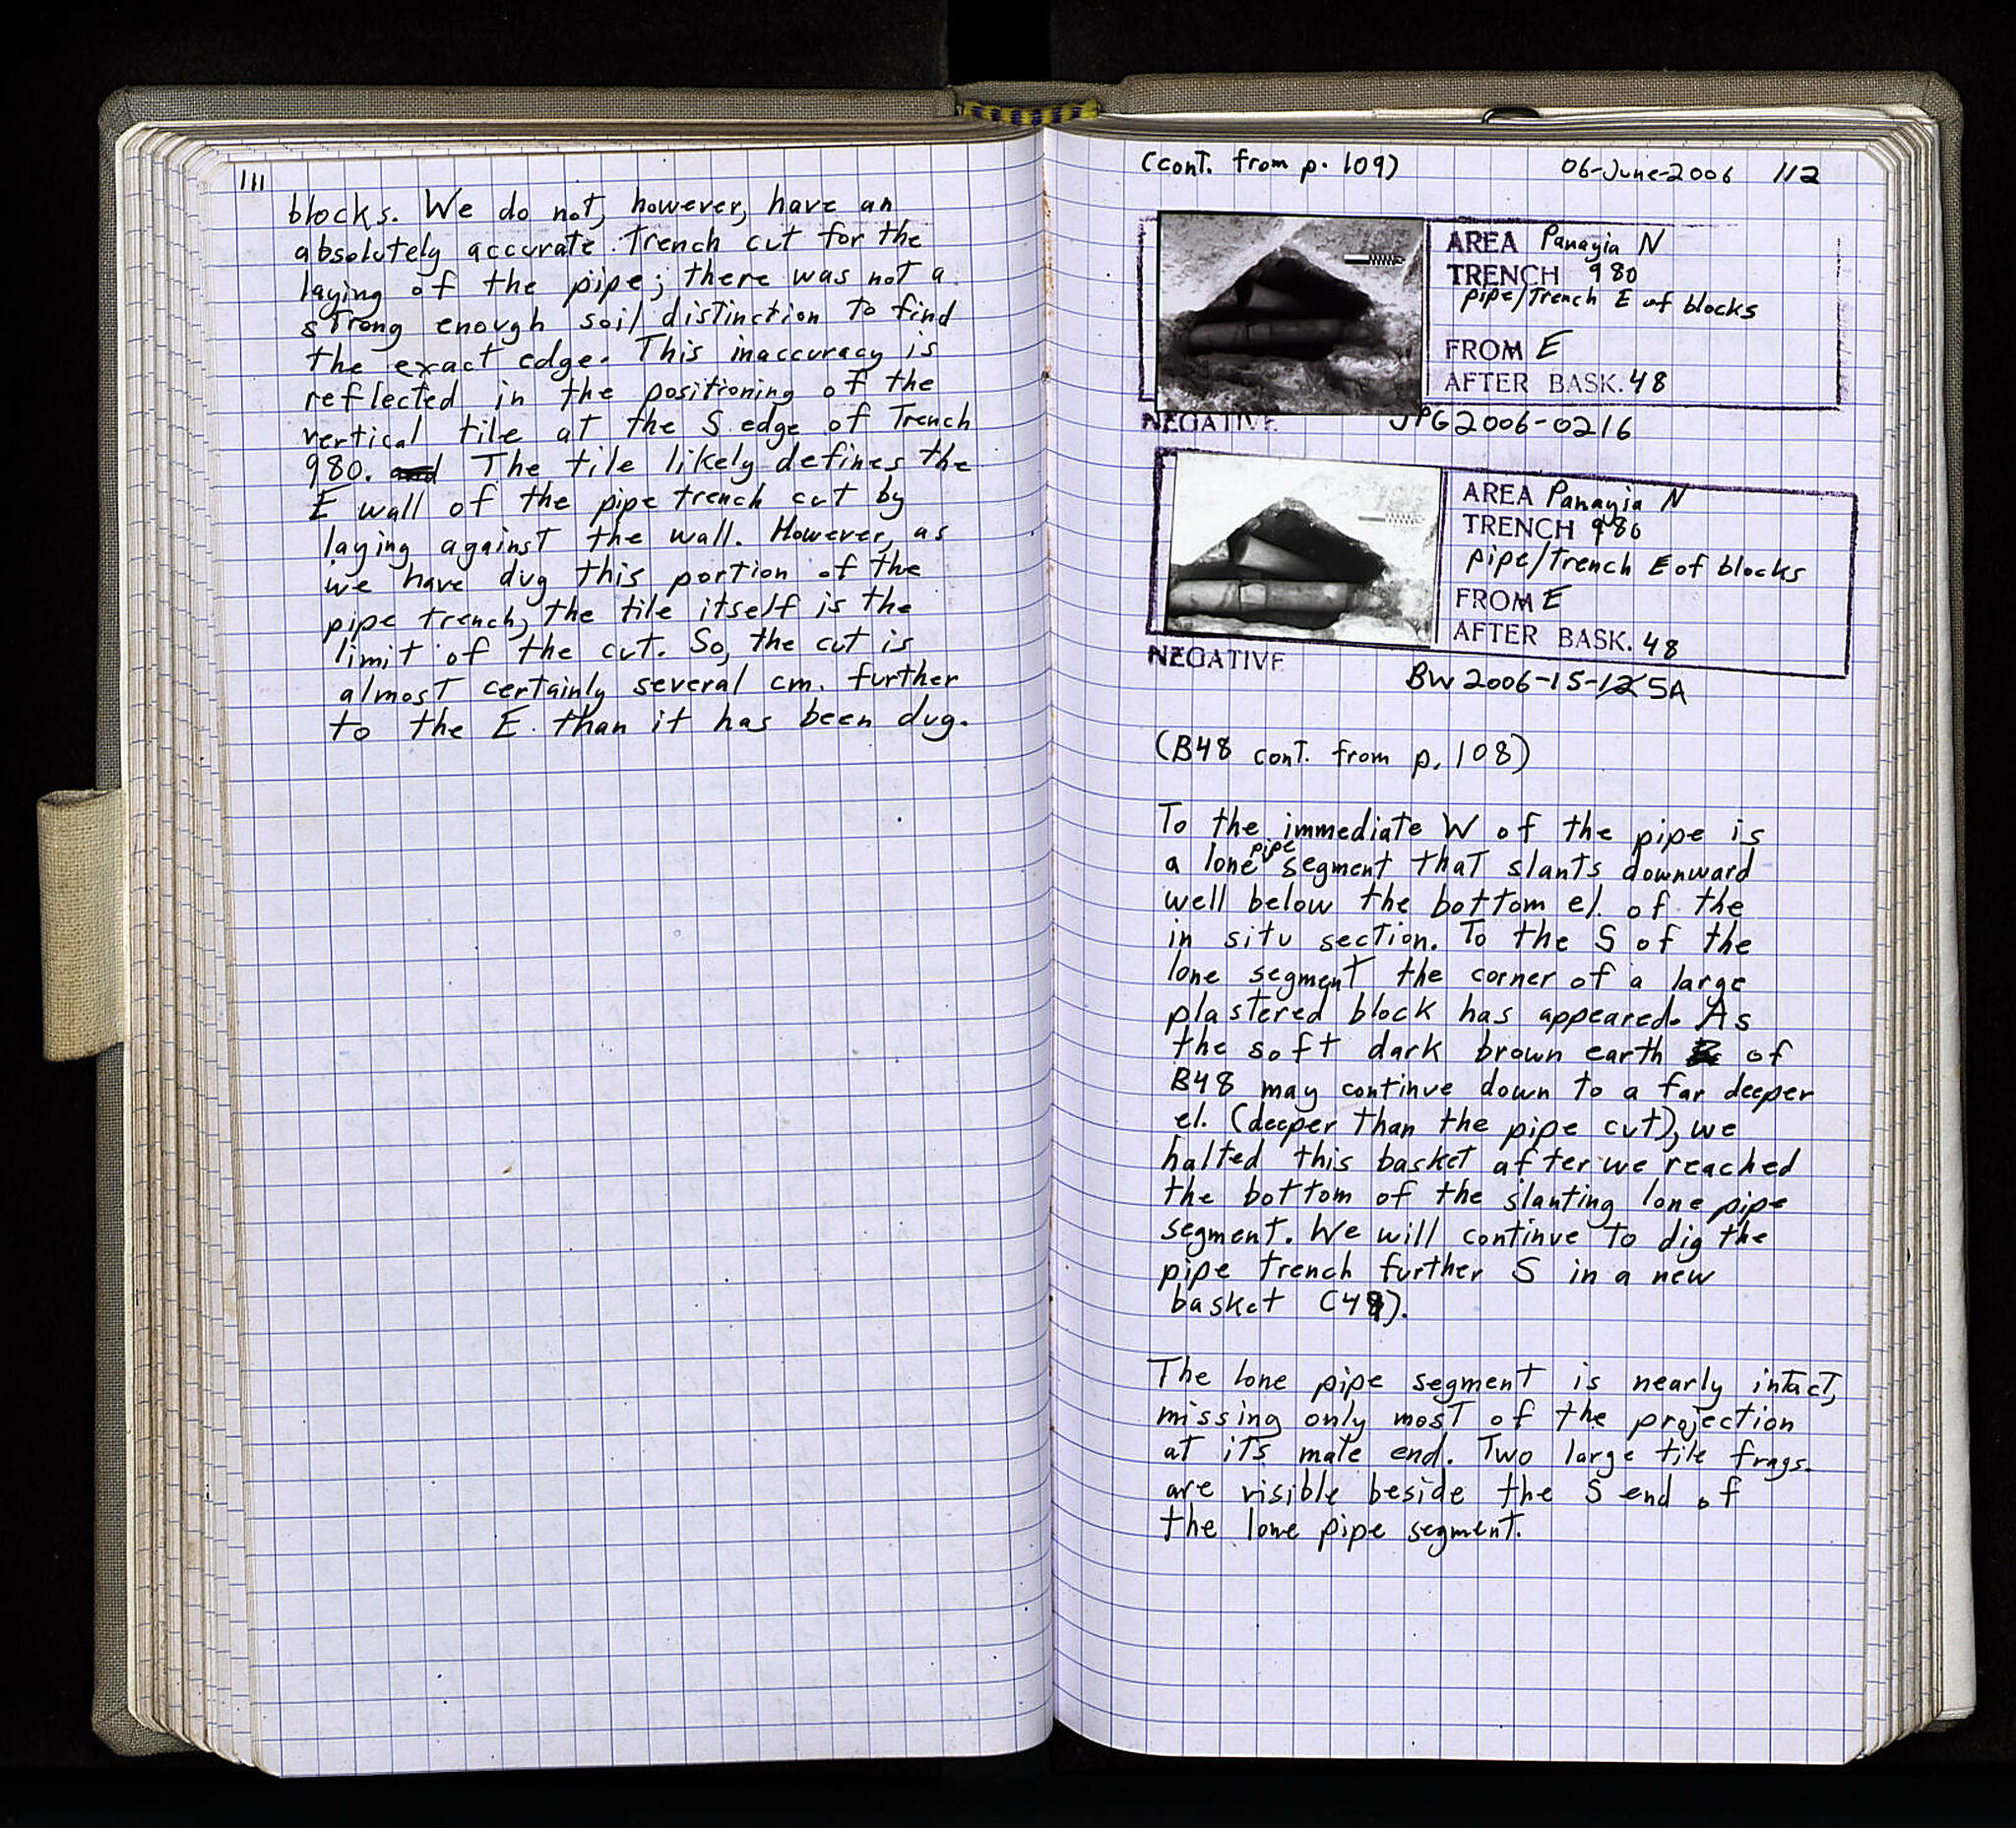 111
blocks. We do not, however, have an
absolutely accurate trench cut for the
laying of the pipe; there was not a
strong enough soil distinction to find
the exact edge. This inaccuracy is
reflected in the positioning of the
vertical tile at the S edge of Trench
980. The tile likely defines the
E wall of the pipe trench cut by
laying against the wall. However, as
we have dug this portion of the
pipe trench, the tile itself is the
limit of the cut. So, the cut is
almost certainly several cm. further
to the E than it has been dug.
(cont. from p. 109) 06-June-2006 112
AREA Panayia N
TRENCH 980
pipe/Trench E of blocks
FROM E
AFTER BASK. 48
NEGATIVE JPG2006-0216
AREA Panayia N
TRENCH 980
pipe/Trench E of blocks
FROM E
AFTER BASK. 48
NEGATIVE BW 2006-15-5A
(B48 cont. from p. 108)
To the immediate W of the pipe is
a lone pipe segment that slants downward
well below the bottom el. of the
in situ section. To the S of the
lone segment the corner of a large
plastered block has appeared. As
the soft dark brown earth of
B48 may continue down to a far deeper
el. (deeper than the pipe cut), we
halted this basket after we reached
the bottom of the slanting lone pipe
segment. We will continue to dig the
pipe trench further S in a new
basket (49).
The lone pipe segment is nearly intact,
missing only most of the projection
at its male end. Two large tile frags.
are visible beside the S end of
the lone pipe segment.